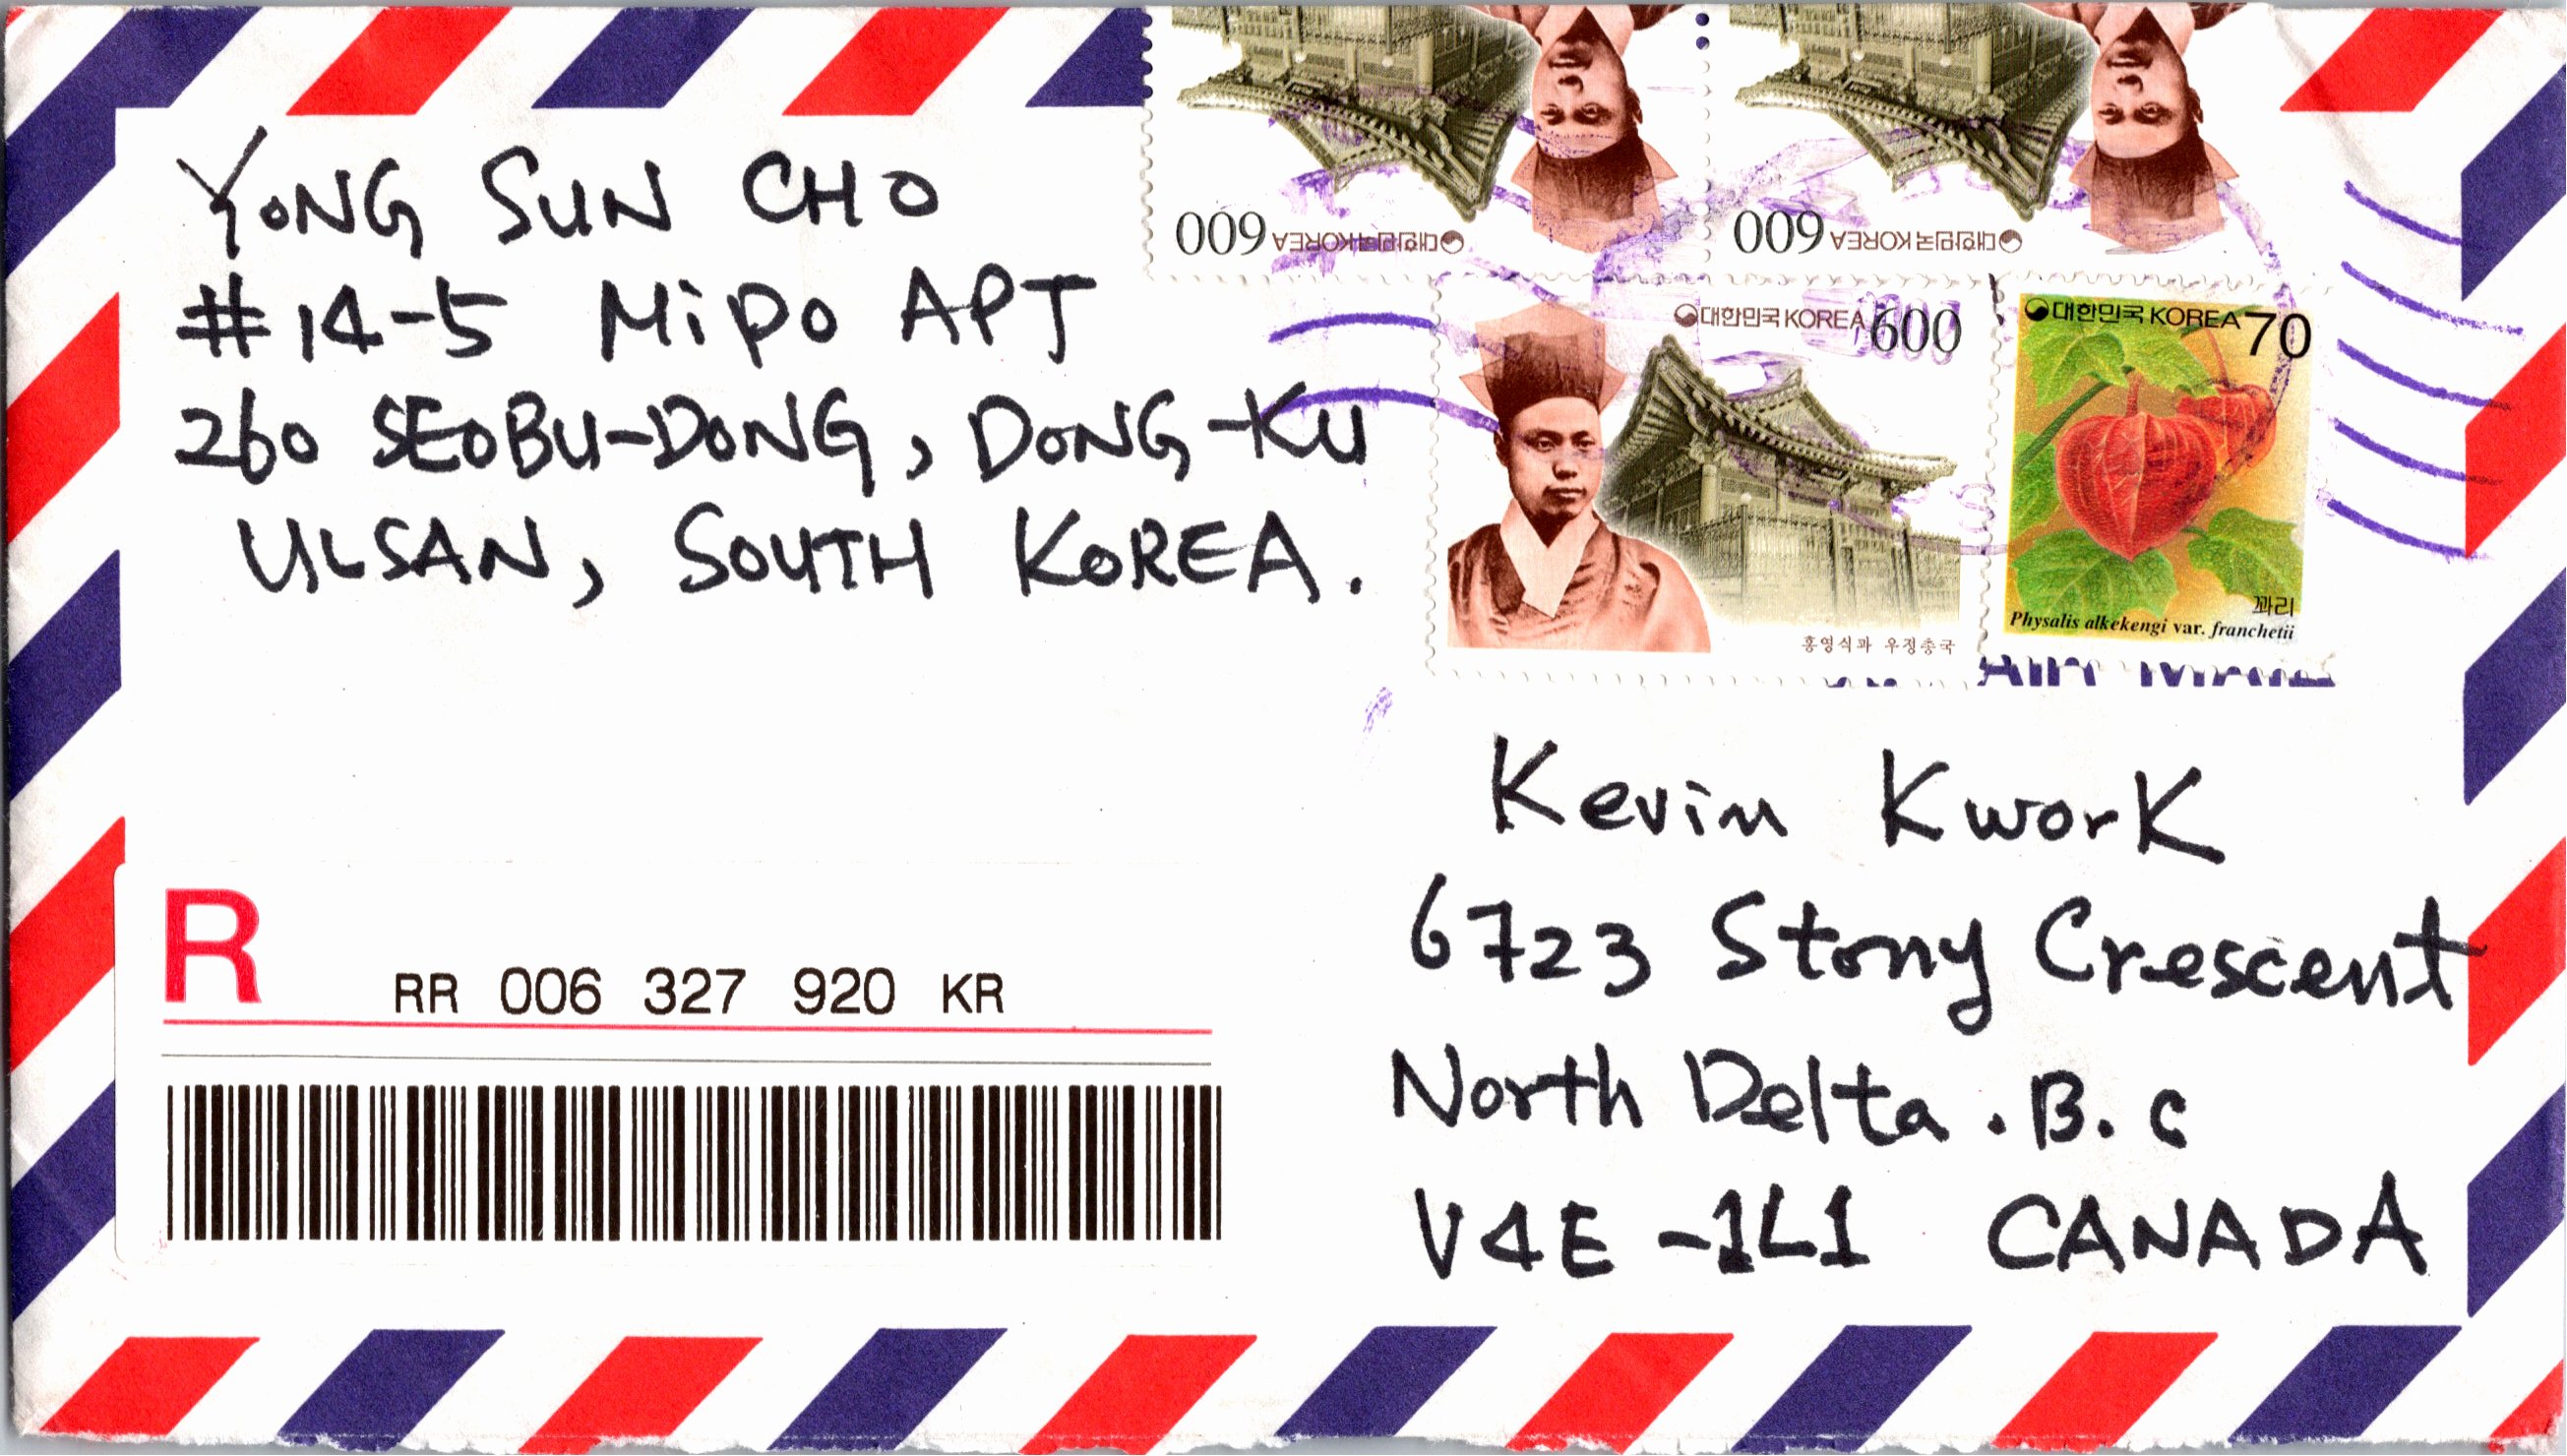 YONG SUN CHO
#14-5 Mipo APT
260 SEOBU-DONG, DONG-KU
ULSAN, SOUTH KOREA.
600 대한민국 KOREA
600 대한민국 KOREA
대한민국 KOREA 600
홍영식과 우정총국
대한민국 KOREA 70
꽈리
Physalis alkekengi var. franchetii
AIR MAIL
Kevin Kwork
6723 Stony Crescent
North Delta . B. C
V4E -1L1 CANADA
R
RR 006 327 920 KR